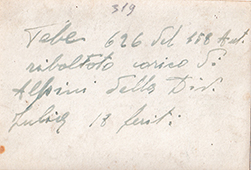 319
626 del 158 Aut.
ribaltato carico di
Alpini della Div.
Julia 18 feriti